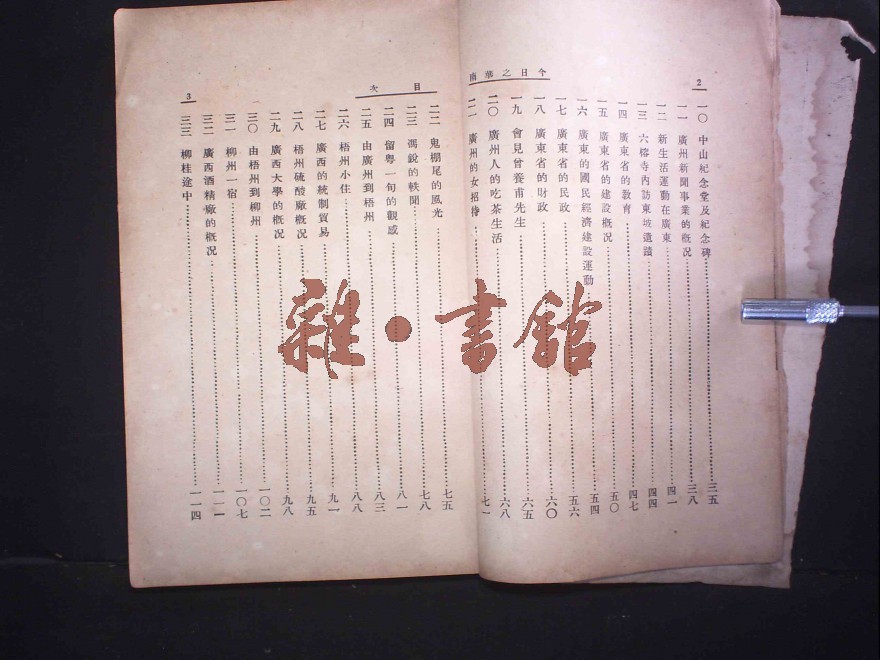 2
今日之華南
一〇 中山紀念堂及紀念碑……三五
一一 廣州新聞事業的概况……三八
一二 新生活運動在廣東……四一
一三 六榕寺內訪東坡遺蹟……四四
一四 廣東省的教育……四七
一五 廣東省的建設概况……五〇
一六 廣東的國民經濟建設運動……五四
一七 廣東省的民政……五六
一八 廣東省的財政……六〇
一九 會見曾養甫先生……六五
二〇 廣州人的吃茶生活……六八
二一 廣州的女招待……七一
目次
3
二二 鬼棚尾的風光……七五
二三 馮銳的軼聞……七八
二四 留粵一旬的觀感……八一
二五 由廣州到梧州……八三
二六 梧州小住……八八
二七 廣西的統制貿易……九一
二八 梧州硫酸廠概况……九五
二九 廣西大學的概况……九八
三〇 由梧州到柳州……一〇二
三一 柳州一宿……一〇七
三二 廣西酒精廠的概况……一一一
三三 柳桂途中……一一四
雜·書館